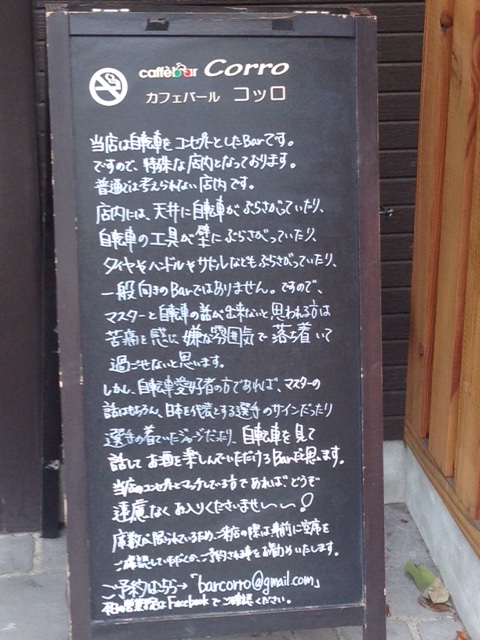 caffèbar Corro
カフェバール コッロ
当店は自転車をコンセプトとしたBarです。
ですので、特殊な店内となっております。
普通では考えられない店内です。
店内には、天井に自転車がぶらさがっていたり、
自転車の工具が壁にぶらさがっていたり、
タイヤやハンドルやサドルなどもぶらさがっていたり、
一般向きのBarではありません。ですので、
マスターと自転車の話が出来ないと思われる方は
苦痛を感じ、嫌な雰囲気で落ち着いて
過ごせないと思います。
しかし、自転車愛好者の方であれば、マスターの
話はもちろん、日本を代表とする選手のサインだったり
選手の着ていたジャージだったり、自転車を見て
話してお酒を楽しんでいただけるBarだと思います。
当店のコンセプトとマッチしている方であればどうぞ
遠慮なくお入りくださいませ〜〜!
席数が限られているため、ご来店の際は事前に空席を
ご確認していただくか、ご予約される事をお勧めいたします。
ご予約はこちら→「barcorro@gmail.com」
本日の営業予定はFacebookでご確認ください。